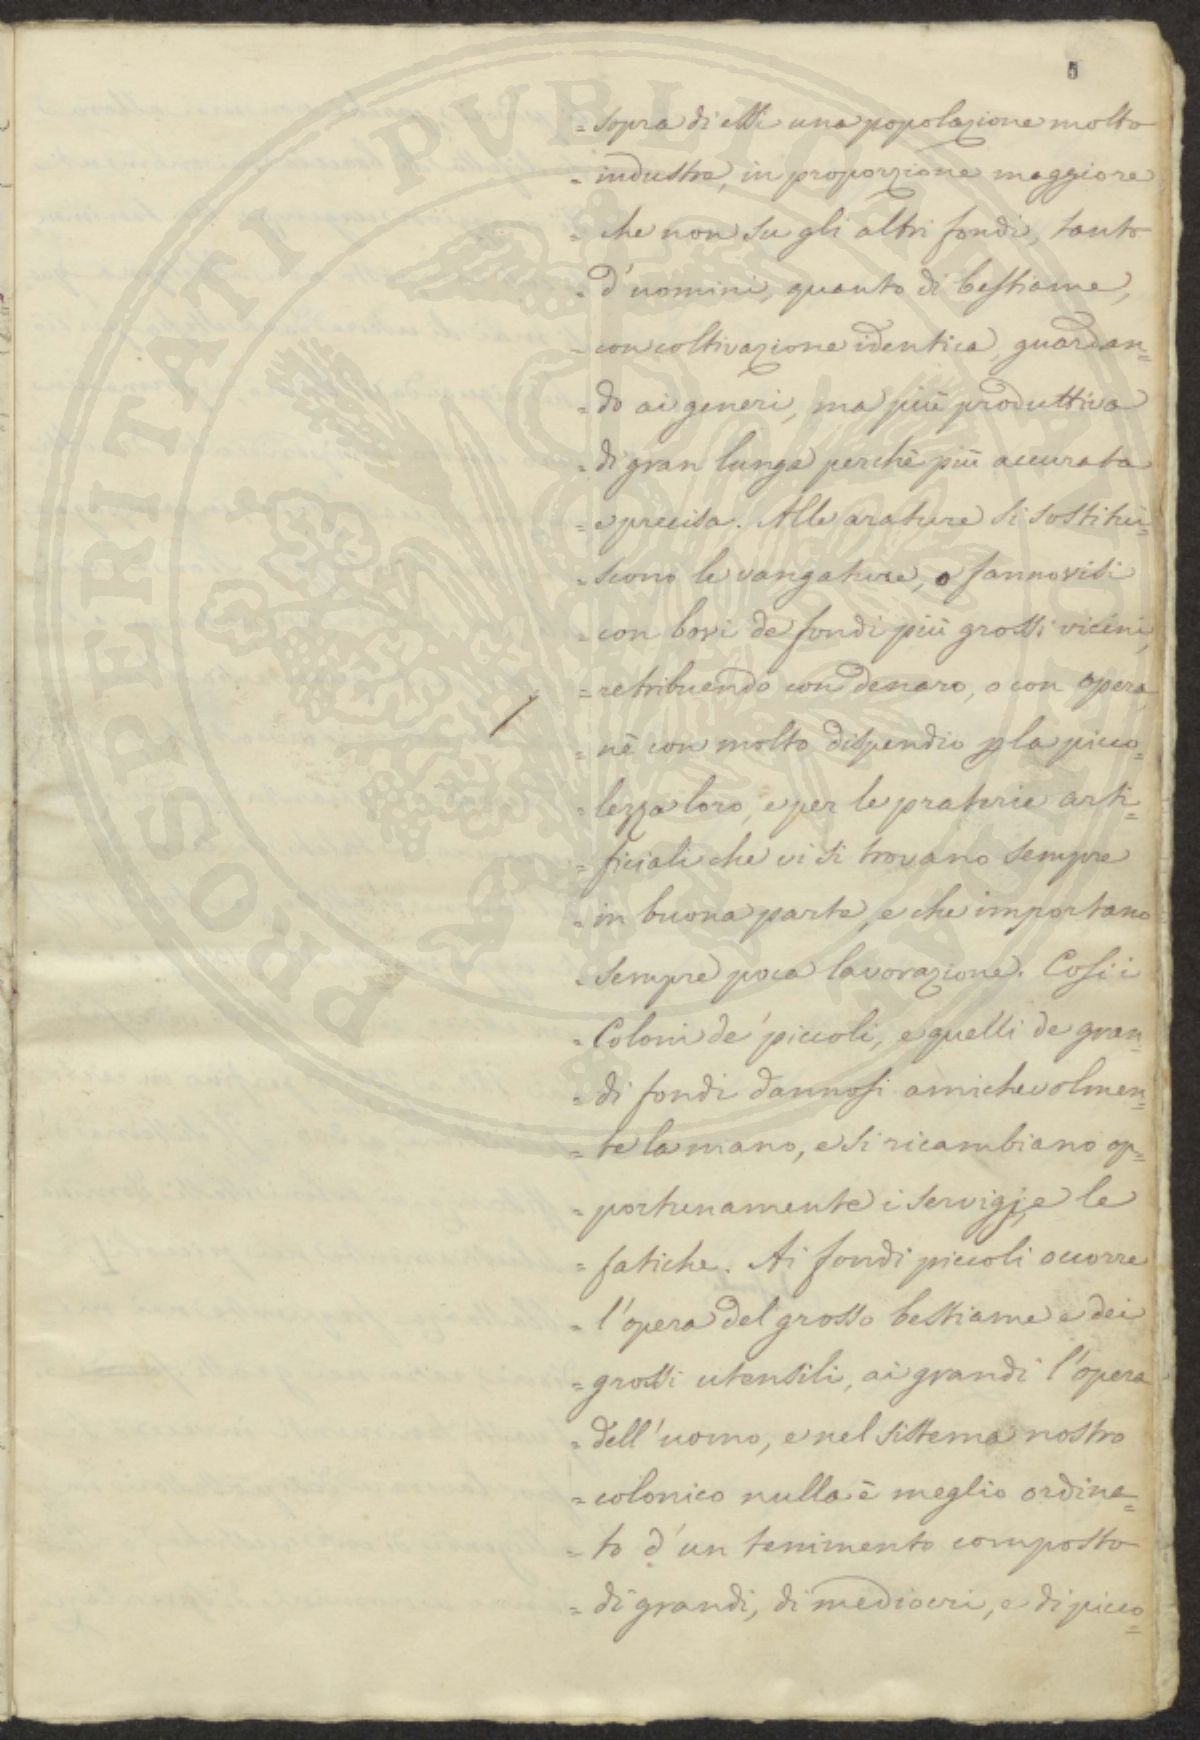 5
= sopra di essi una popolazione molto
= industre, in proporzione maggiore
= che non su gli altri fondi, tanto
= d'uomini, quanto di bestiame,
= con coltivazione identica, guardan=
= do ai generi, ma più produttiva
= di gran lunga perchè più accurata
= e precisa. Alle arature si sostitui=
= scono le vangature, o fannovisi
= con bovi de fondi più grossi vicini,
= retribuendo con denaro, o con opera
= nè con molto dispendio p la picco=
= lezza loro, e per le praterie arti=
= ficiali che vi si trovano sempre
= in buona parte, e che importano
= sempre poca lavorazione. Così i
= Coloni de' piccoli, e quelli de gran=
= di fondi dannosi amichevolmen=
= te la mano, e si ricambiano op=
= portunamente i servigj, e le
= fatiche. Ai fondi piccoli occorre
= l'opera del grosso bestiame e dei
= grossi utensili, ai grandi l'opera
= dell'uomo, e nel sistema nostro
= colonico nulla è meglio ordina=
= to d'un tenimento composto
= di grandi, di mediocri, e di picco=
PROSPERITATI PVBLICAE AVGENDAE